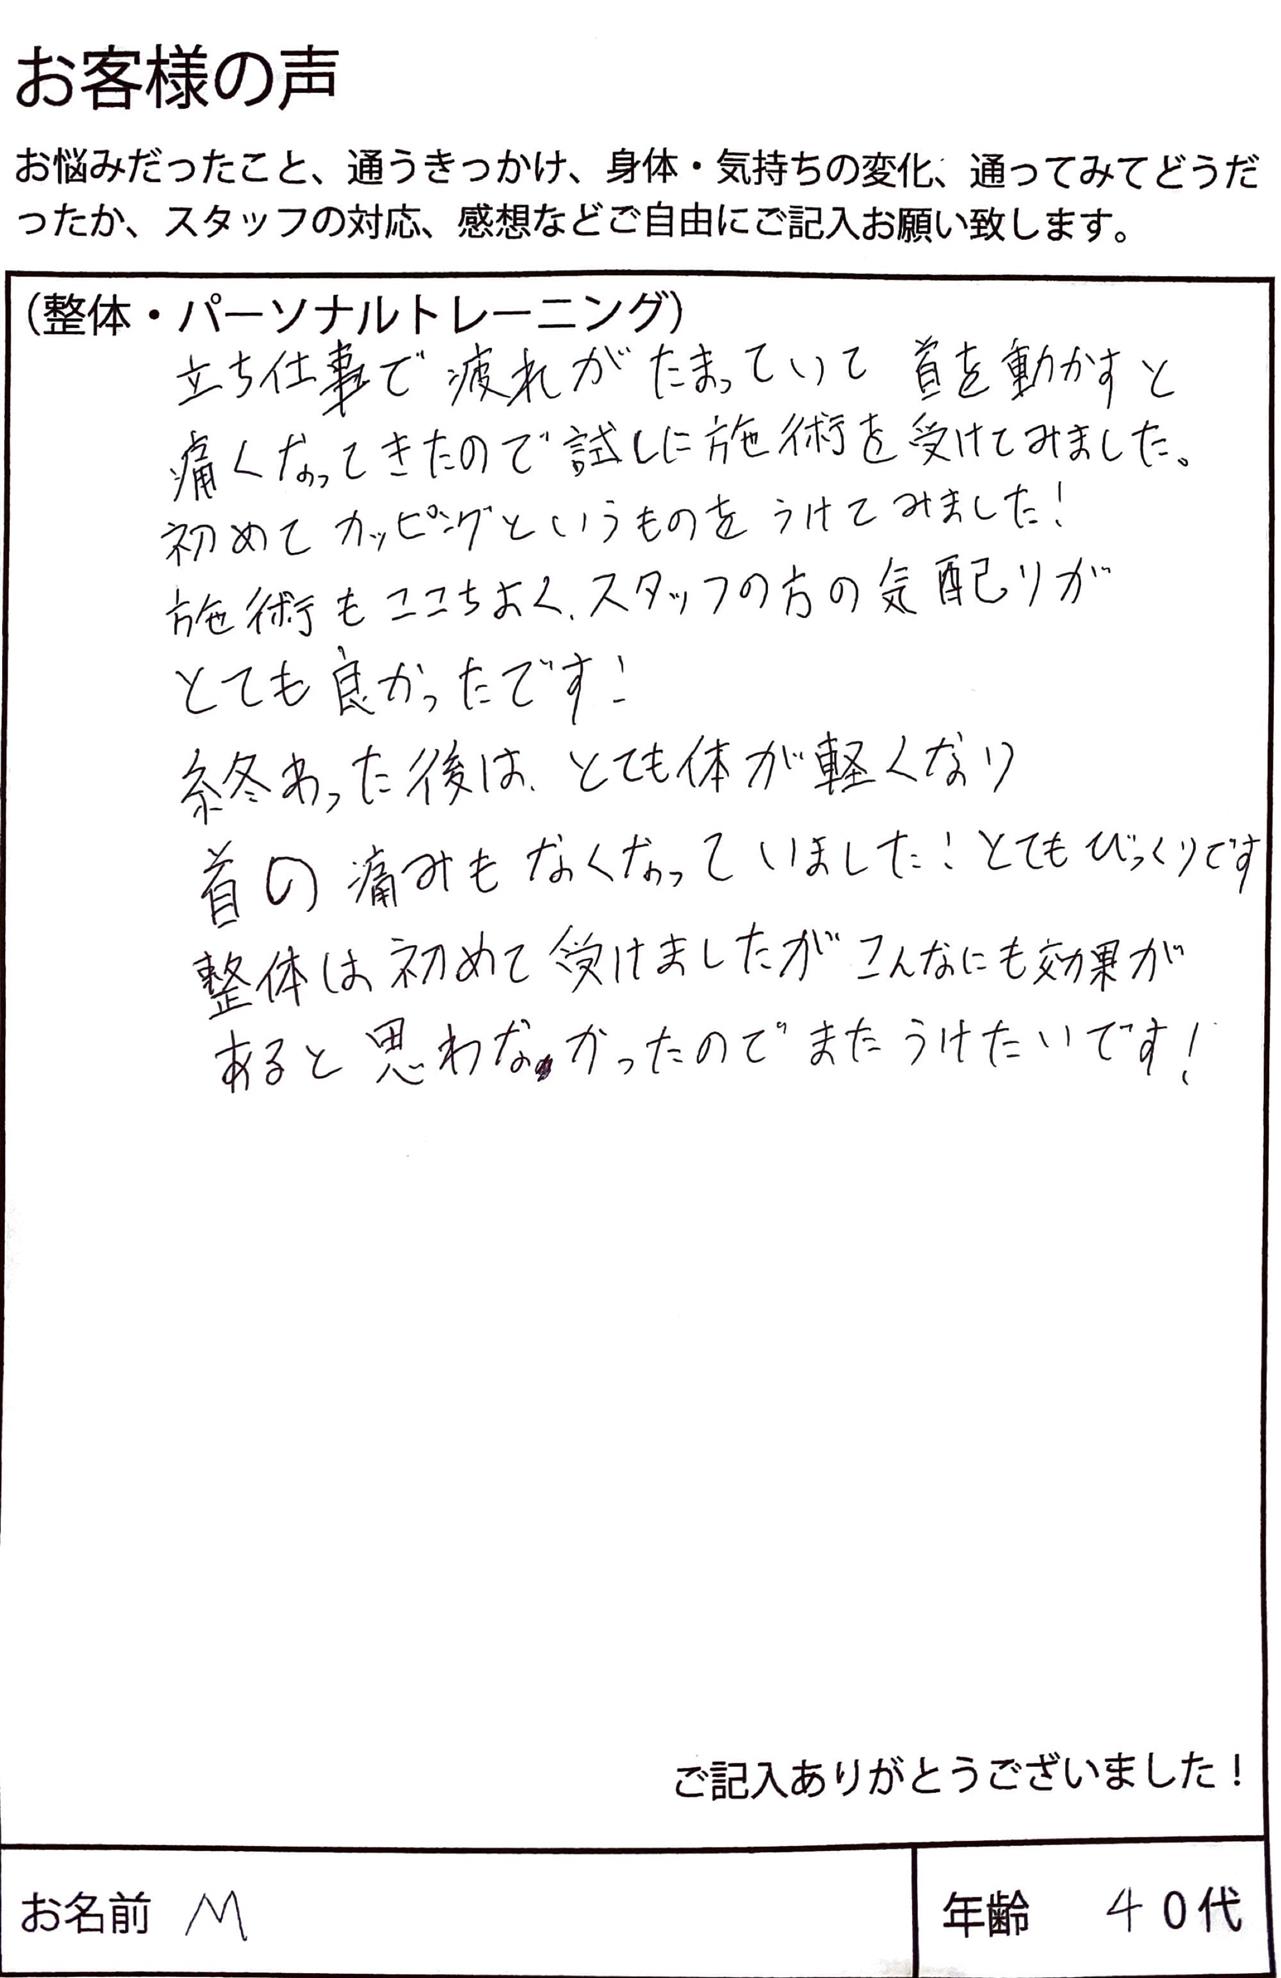 お客様の声
お悩みだったこと、通うきっかけ、身体・気持ちの変化、通ってみてどうだ
ったか、スタッフの対応、感想などご自由にご記入お願い致します。
（整体・パーソナルトレーニング）
立ち仕事で疲れがたまっていて首を動かすと
痛くなってきたので試しに施術を受けてみました。
初めてカッピングというものをうけてみました！
施術もここちよく、スタッフの方の気配りが
とても良かったです！
終わった後は、とても体が軽くなり
首の痛みもなくなっていました！とてもびっくりです
整体は初めて受けましたがこんなにも効果が
あると思わなかったのでまたうけたいです！
ご記入ありがとうございました！
お名前 M
年齢 40代